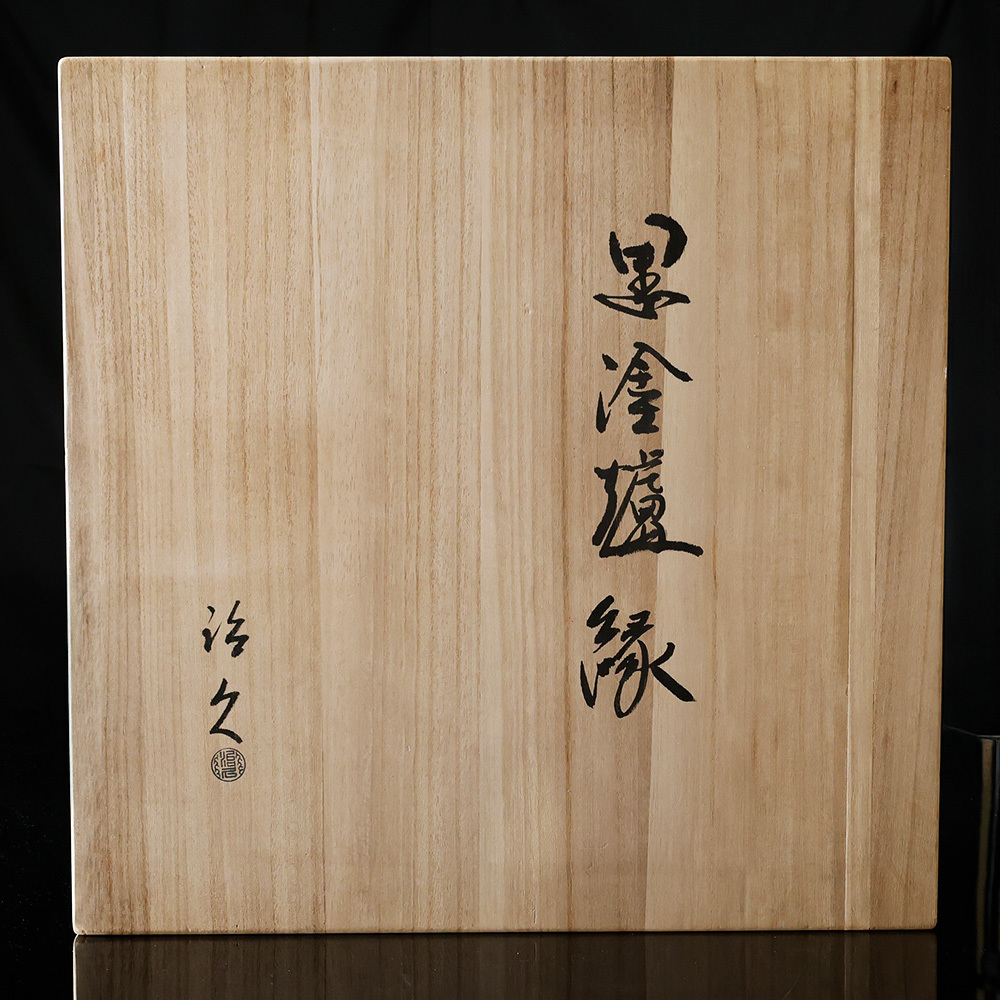 黒塗爐縁
治久